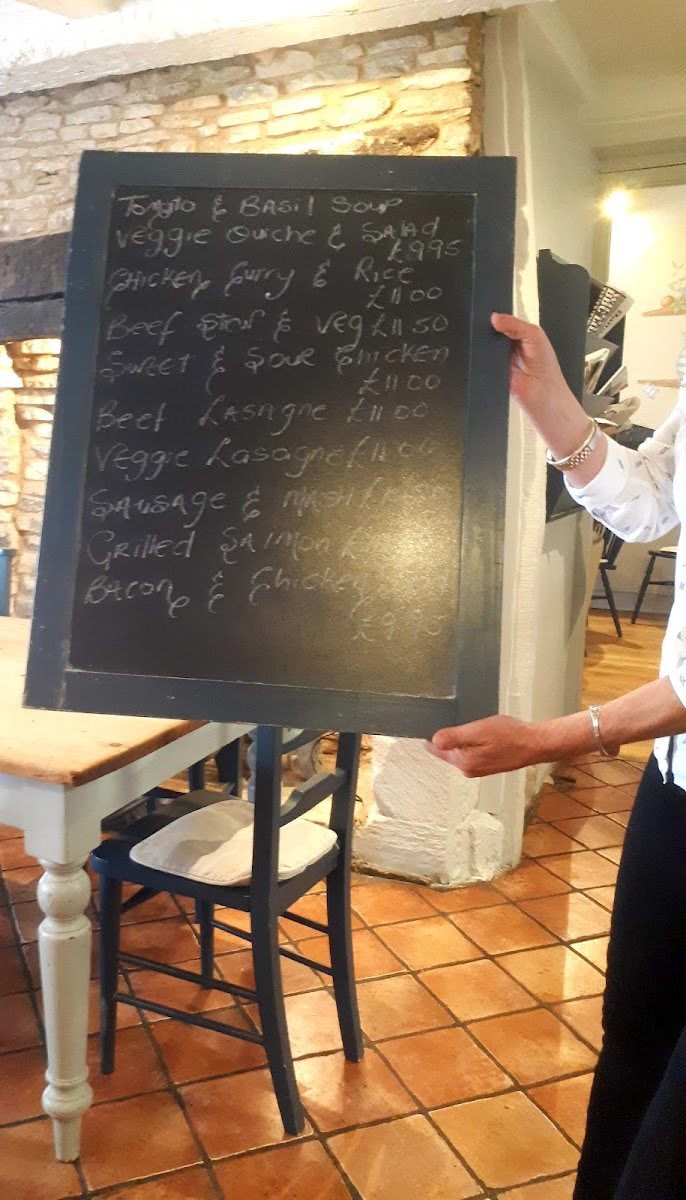 Tomato & Basil Soup
Veggie Quiche & Salad
£9.95
Chicken Curry & Rice
£11.00
Beef Stew & Veg £11.50
Sweet & Sour Chicken
£11.00
Beef Lasagne £11.00
Veggie Lasagne £11.00
Sausage & Mash
Grilled Salmon
Bacon & Chicken
£9.95